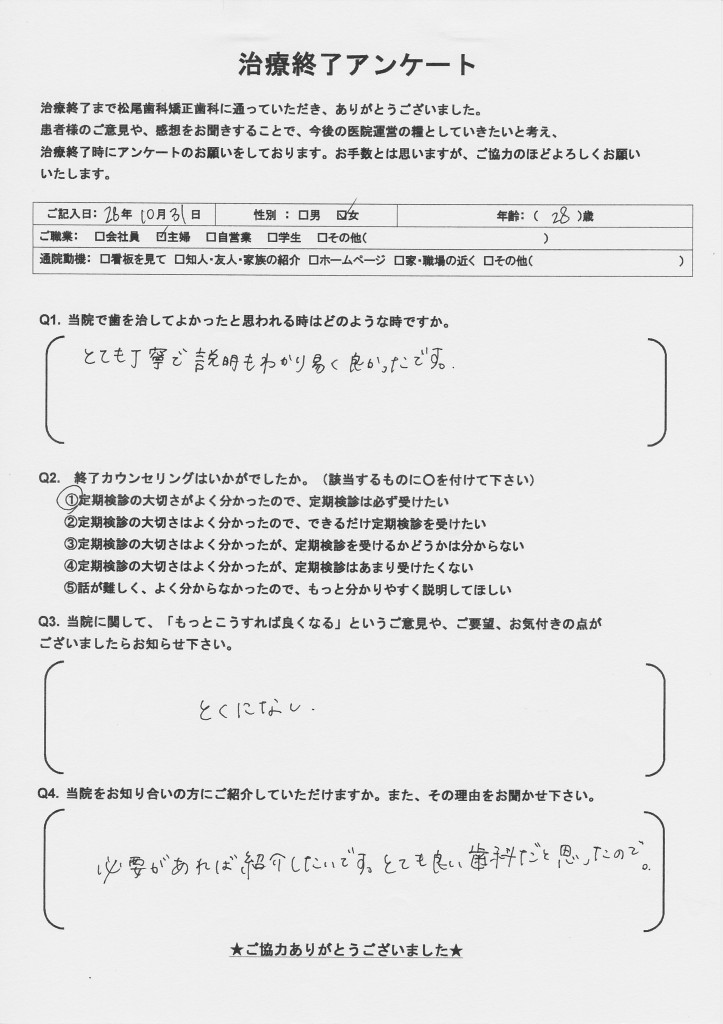 治療終了アンケート
治療終了まで松尾歯科矯正歯科に通っていただき、ありがとうございました。
患者様のご意見や、感想をお聞きすることで、今後の医院運営の糧としていきたいと考え、
治療終了時にアンケートのお願いをしております。お手数とは思いますが、ご協力のほどよろしくお願い
いたします。
ご記入日：28年 10月31日 性別 ： □男 ☑女 年齢：（ 28 ）歳
ご職業： □会社員 ☑主婦 □自営業 □学生 □その他( )
通院動機： □看板を見て □知人・友人・家族の紹介 □ホームページ □家・職場の近く □その他( )
Q1. 当院で歯を治してよかったと思われる時はどのような時ですか。
とても丁寧で説明もわかり易く良かったです。
Q2. 終了カウンセリングはいかがでしたか。（該当するものに〇を付けて下さい）
①定期検診の大切さがよく分かったので、定期検診は必ず受けたい
②定期検診の大切さはよく分かったので、できるだけ定期検診を受けたい
③定期検診の大切さはよく分かったが、定期検診を受けるかどうかは分からない
④定期検診の大切さはよく分かったが、定期検診はあまり受けたくない
⑤話が難しく、よく分からなかったので、もっと分かりやすく説明してほしい
Q3. 当院に関して、「もっとこうすれば良くなる」というご意見や、ご要望、お気付きの点が
ございましたらお知らせ下さい。
とくになし.
Q4. 当院をお知り合いの方にご紹介していただけますか。また、その理由をお聞かせ下さい。
必要があれば紹介したいです。とても良い歯科だと思ったので。
★ご協力ありがとうございました★